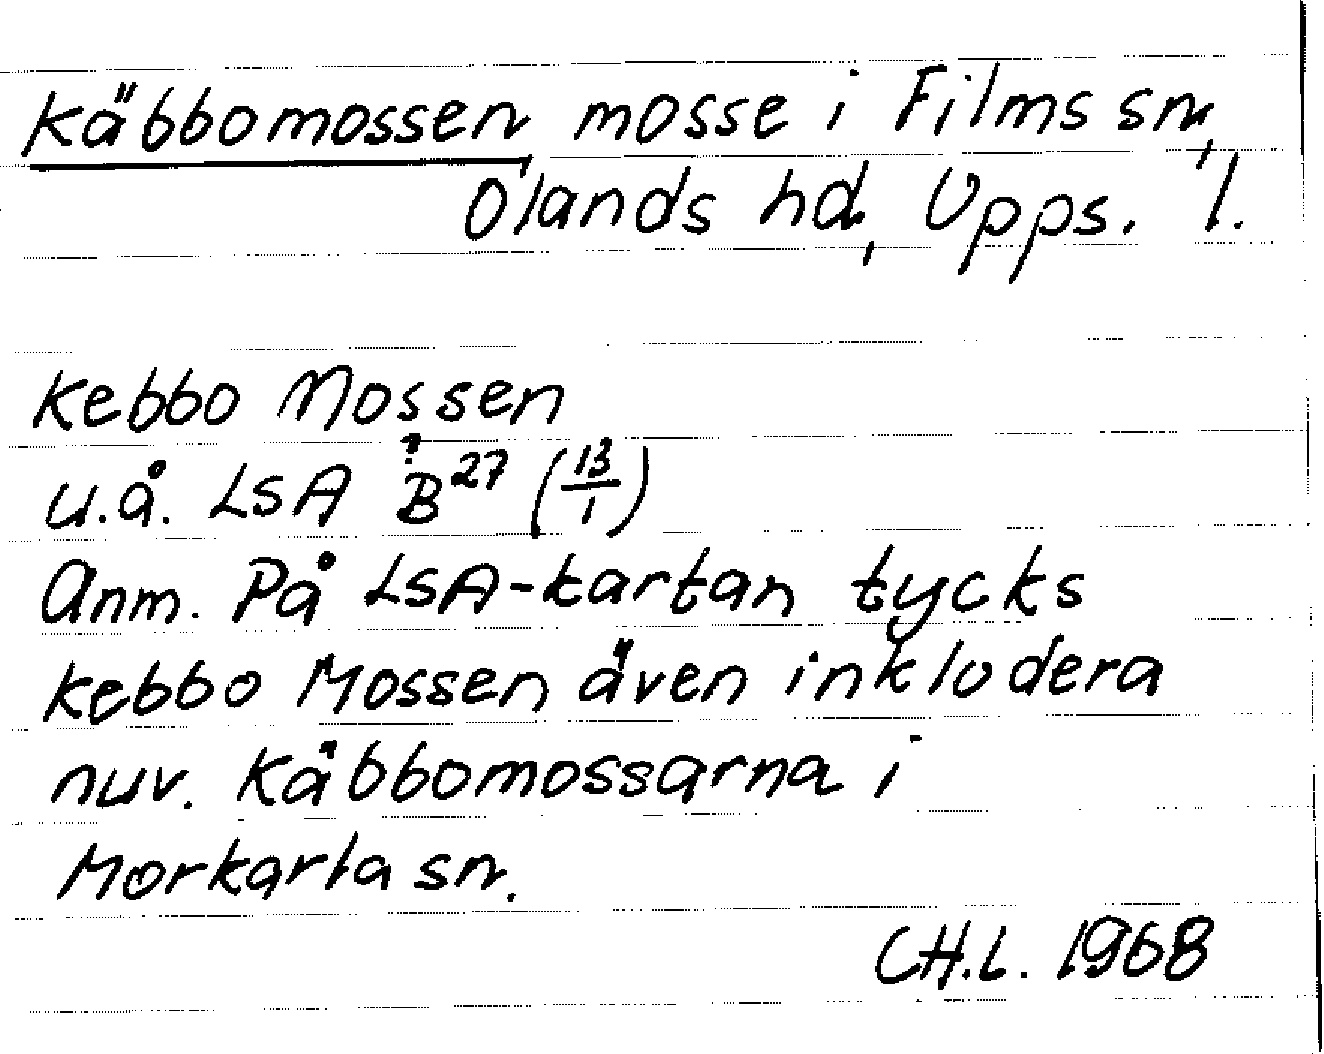 Käbbomossen mosse i Films sn,
Olands hd, Upps. l.
Kebbo Mossen
u.å. LSA B27 (13/1)
Anm. På LSA-kartan tycks
Kebbo Mossen även inkludera
nuv. Käbbomossarna i
Morkarla sn.
CH.L. 1968